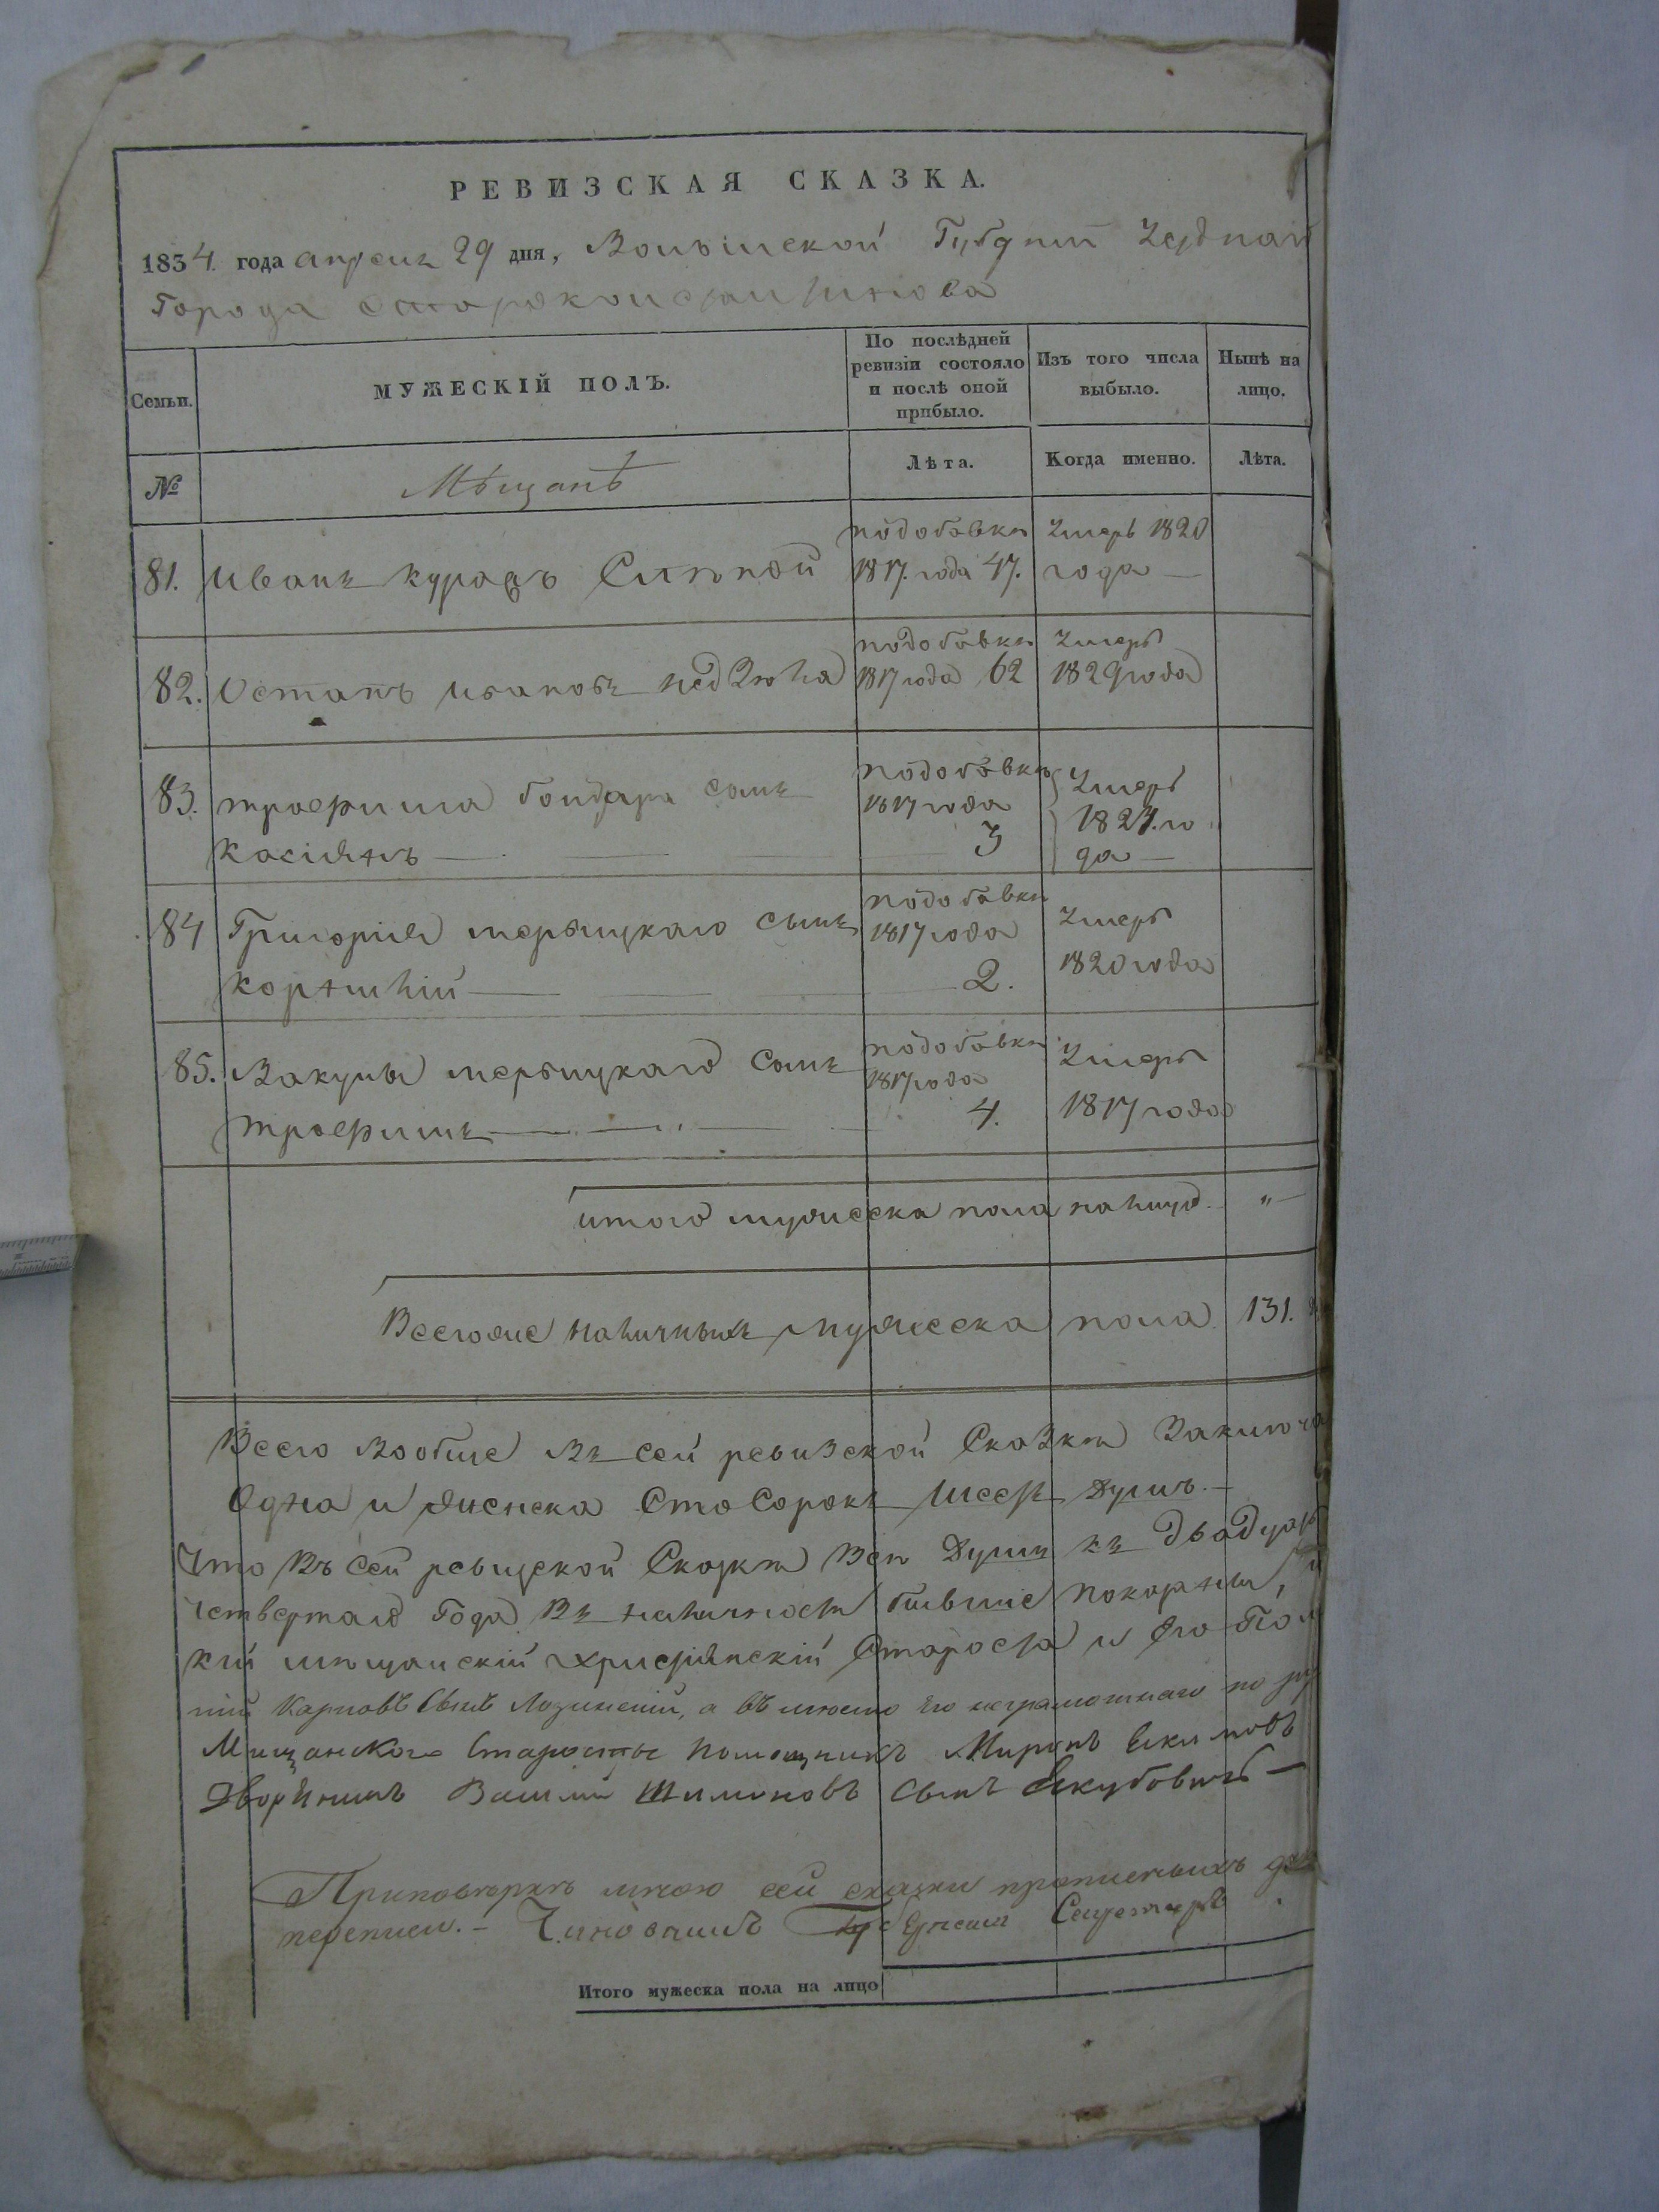 РЕВИЗСКАЯ СКАЗКА.
1834. года апреля 29 дня, Волынской Губернии Уездного
Города Староконстантинова
Семьи.
МУЖЕСКІЙ ПОЛЪ.
По послѣдней ревизіи состояло и послѣ оной прибыло.
Изъ того числа выбыло.
Нынѣ на лицо.
№
Мѣщанѣ
Лѣта.
Когда именно.
Лѣта.
81. Иванъ Слѣпой
подобавки 1817. года 47.
Умеръ 1820 года —
82. Остапъ Ивановъ
подобавки 1817 года 62
Умеръ 1829 года
83. Трофима бондара сынъ
Касіянъ —
подобавки 1817 года 3
Умеръ 182 . го да —
84 Григорія сынъ
Корнилій —
подобавки 1817 года 2.
Умеръ 1820 года
85. Вакулы сынъ
Трофимъ —
подобавки 1817 года 4.
Умеръ 1817 года
итого мужеска пола налицо. „ —
Всегоже наличныхъ мужеска пола 131.
Всего вообще Въ сей ревизской Сказки Заключа
Одна и женска Сто Сорокъ шесть душъ. —
Что Въ сей ревизской Сказки всѣ Души къ двадцать
четвертаго Года Въ наличности бывшіе показаны,
кій мѣщанскій христіянскій Староста и его
Карповъ Сынъ Лозинскій, а въ мѣсто его неграмотнаго по
Мищанского Старосты помощникъ Миронъ Екимовъ
Дворянинъ Василій Шимоновъ сынъ Якубовичъ —
мною сей сказки прописныхъ
переписи. — Чиновникъ Губернскій Секретарь
Итого мужеска пола на лицо